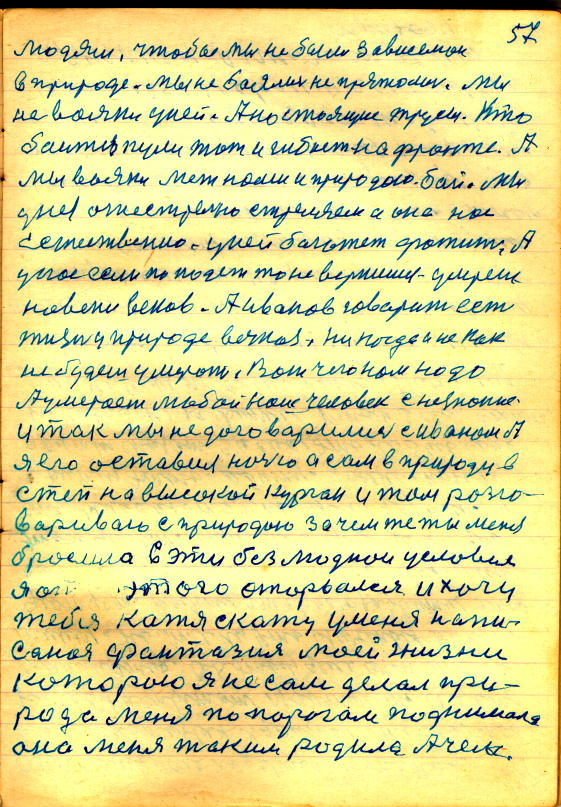 57
людями, чтобы мы не были зависемои
в природе. мы не боялись не прятолис. мы
не вояки уней. А настоящие трусы. Кто
боится пули тот и гибнет на фронте. А
мы вояки меж нами и природою. бой. мы
уней огнестрельно стреляем а она нас
естественно. уней бachтет
если попадет то не вернишся. умреш
навеки веков. А иванов говарит ест
жизн у природе вечная. ни когда и не как
не будеш умерат. Вот чего нам надо
А умерает любой наш человек с незнание.
и так мы не договарилис с иваном А
я его оставил ночю а сам в природу в
степ на высокой курган и там разго-
вариваю с природою зачем же ты меня
бросила в эти безлюдной условия
я от этого оторвался и хочу
тебя Катя скажу уменя напи-
саная фантазия моей жизни
которою я не сам делал при-
рода меня по порогам поднимала
она меня таким родила А чел.